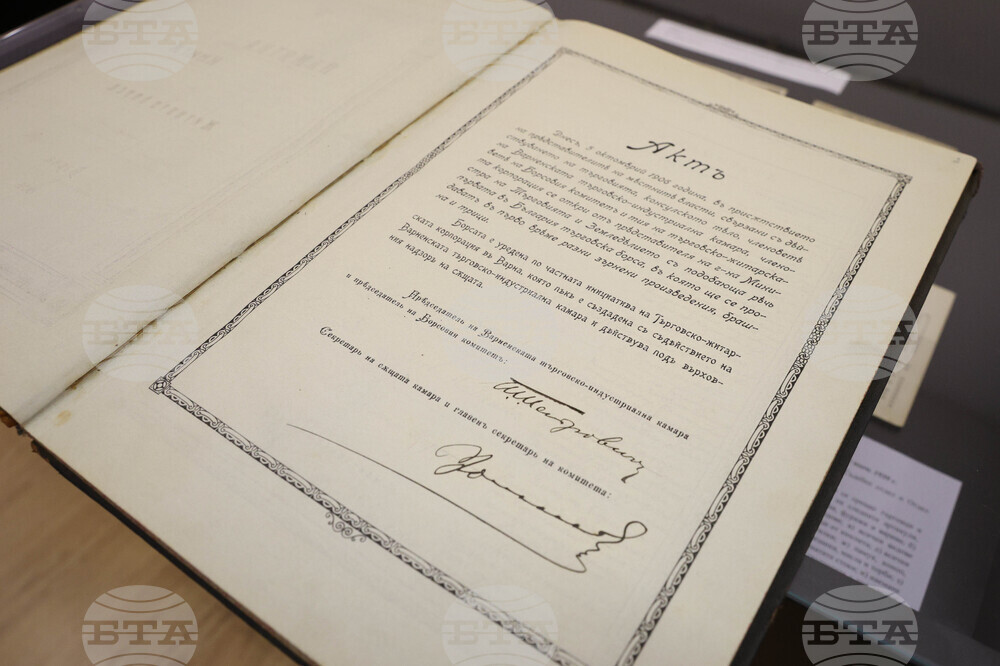 БТА
БТА
БТА
Актъ
Днесъ, 5 октомврий 1906 година, въ присѫтствието
на прѣдставителитѣ на мѣстнитѣ власти, свързани съ дѣй-
ствуването на търговията, консулското тѣло, членоветѣ
на Варненската търговско-индустриална камара, члено-
ветѣ на Борсовия комитетъ и тия на търговско-житарска-
та корпорация се откри отъ прѣдставителя на г-на Мини-
стра на Търговията и Земледѣлието съ подобающа рѣчь
първата въ България търговска борса, въ която ще се про-
даватъ въ първо врѣме разни зърнени произведения, браш-
на и трици.
Борсата е уредена по частната инициатива на Търговско-житар-
ската корпорация въ Варна, която пъкъ е създадена съ съдѣйствието на
Варненската търговско-индустриална камара и дѣйствува подъ върхов-
ния надзоръ на сѫщата.
Прѣдседатель на Варненската търговско-индустриална камара
и прѣдседатель на Борсовия комитетъ:
Секретарь на сѫщата камара и главенъ секретарь на комитета:
БТА
БТА
БТА
БТА
БТА
БТА